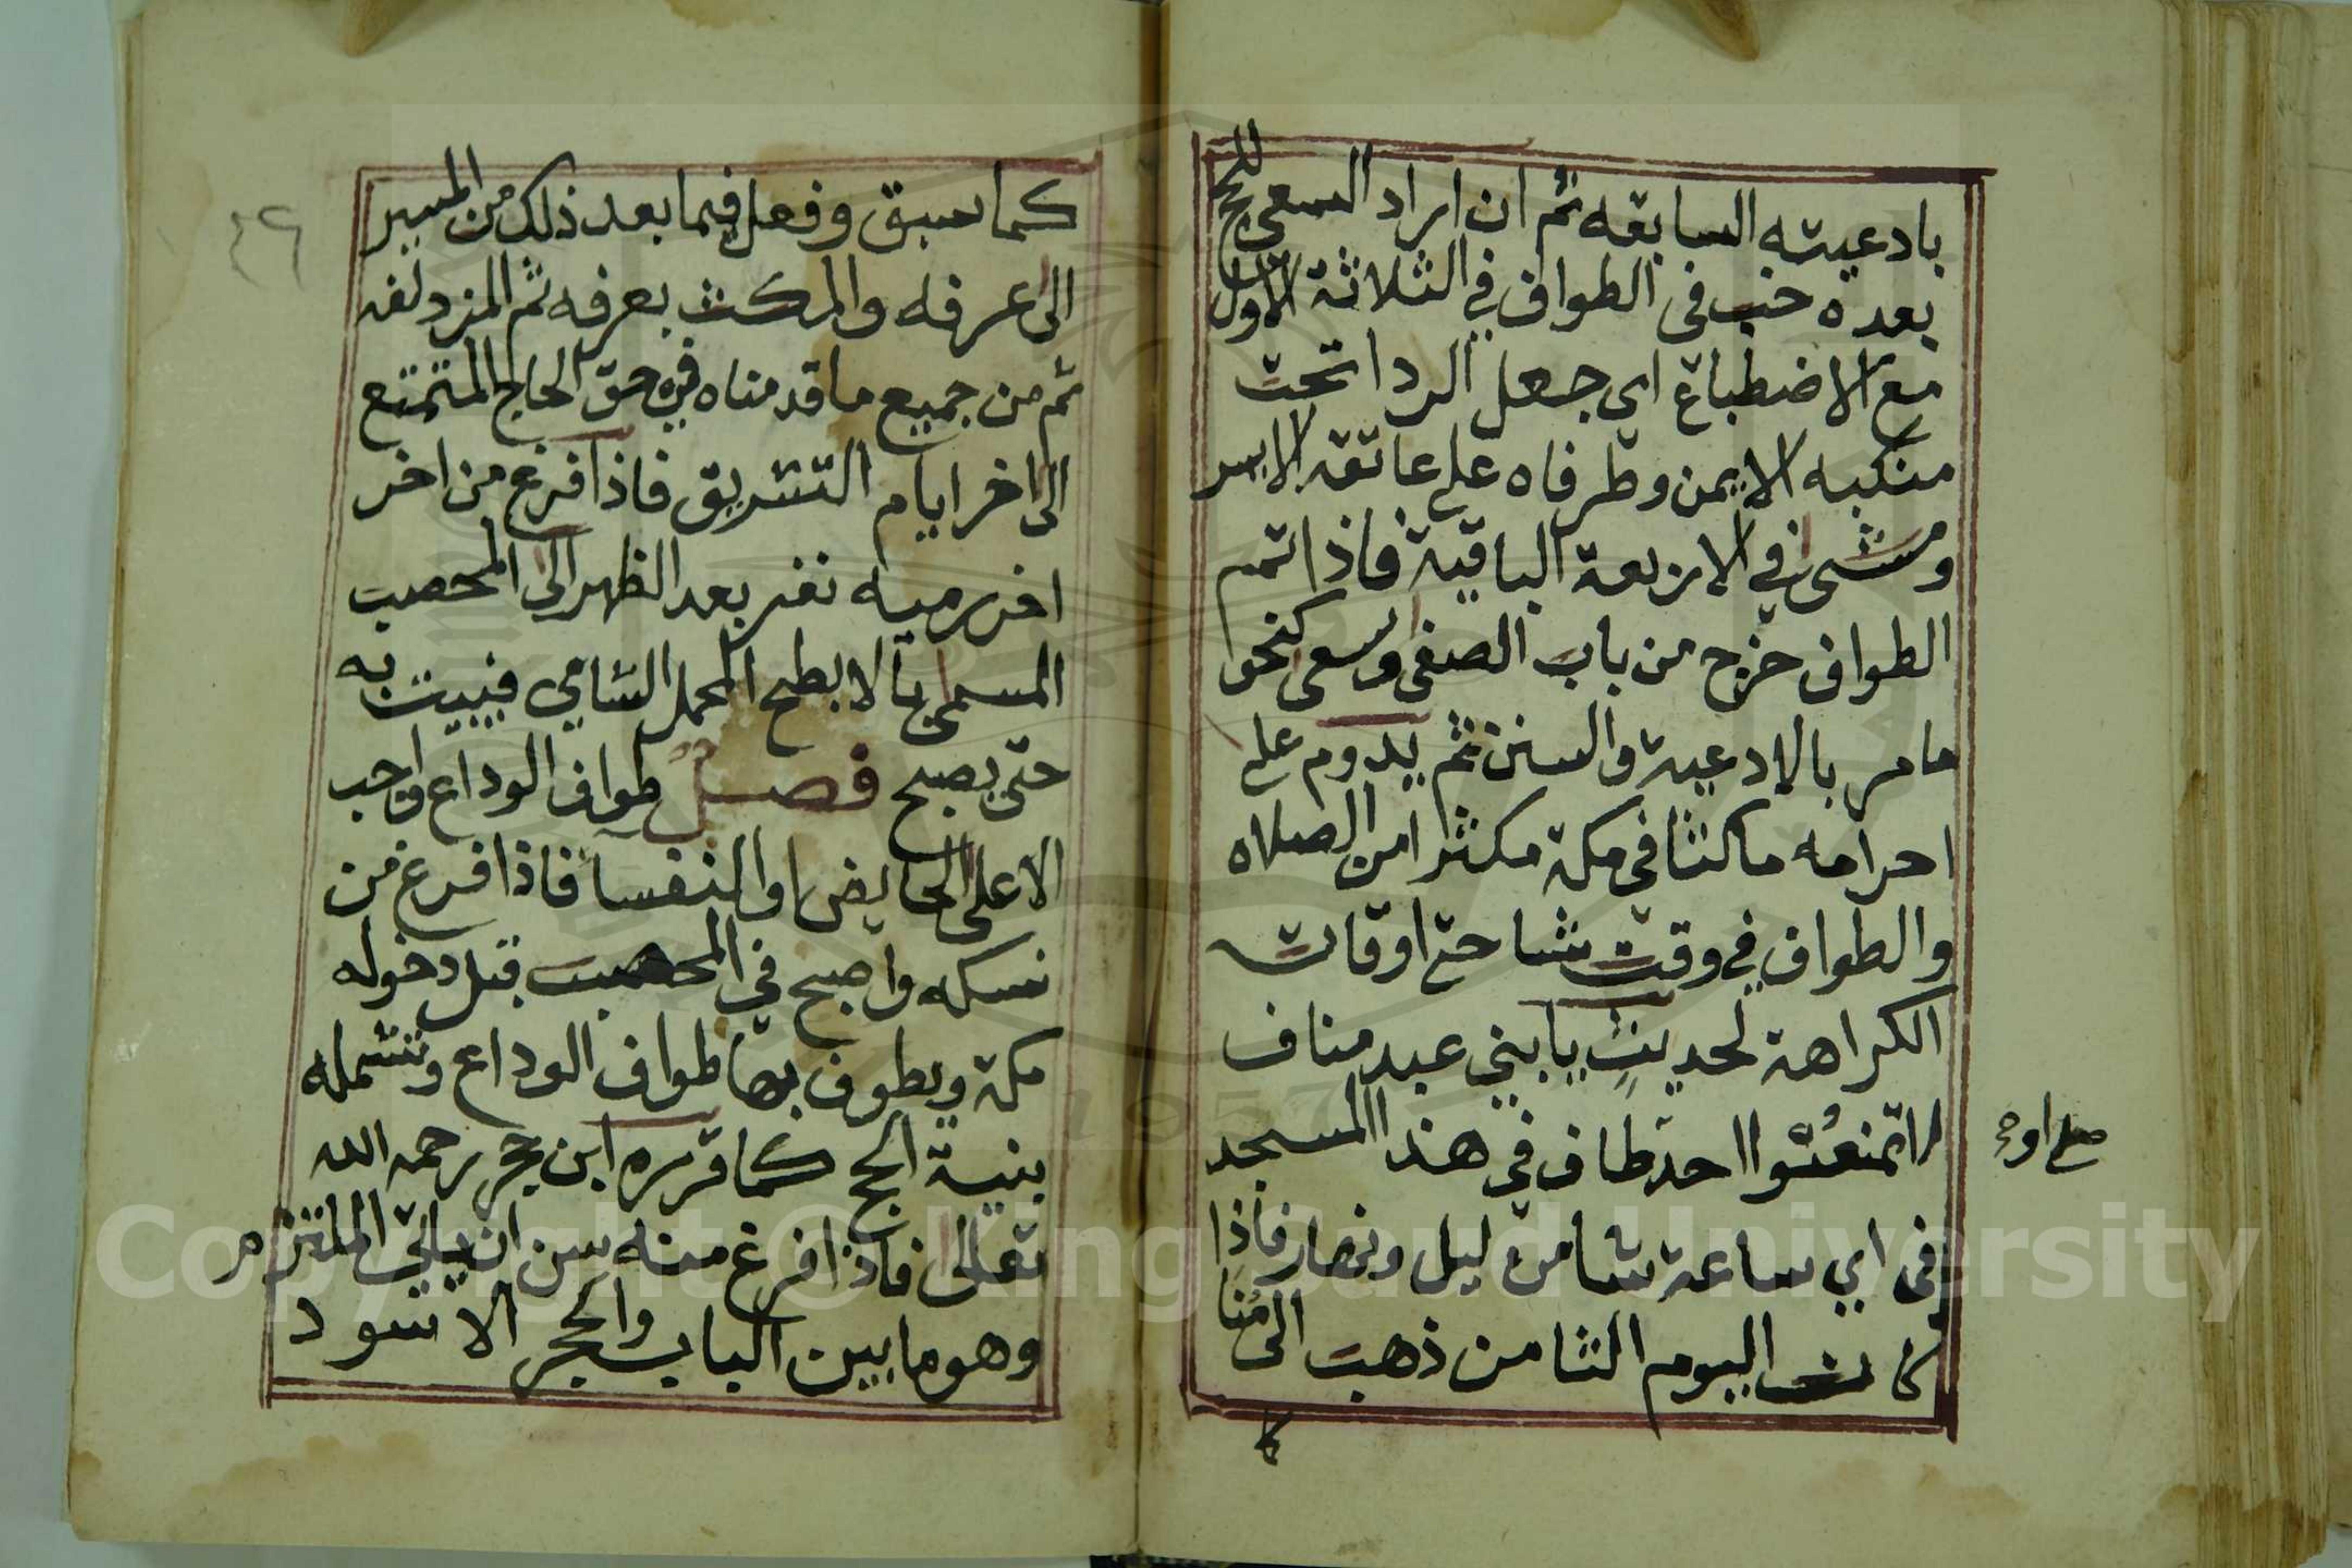 بادعيته السابقه ثم ان اراد السعي للحج
بعده خب في الطواف في الثلاثة الاول
مع الاضطباع اي جعل الردا تحت
منكبه الايمن وطرفاه على عاتقه الايسر
ومشى في الاربعة الباقية فاذا تمم
الطواف خرج من باب الصفى وسعى كنحو
ما مر بالادعية والسنن ثم يدوم على
احرامه ماكثا في مكة مكثرا من الصلاه
والطواف في وقت شا حتى اوقات
الكراهة لحديث يا بني عبد مناف
لا تمنعوا احد طاف في هذا المسجد
او
في اي ساعة شا من ليل ونهار فاذا
كان اليوم الثامن ذهب الى منا
كما
كما سبق وفعل فيما بعد ذلك من المسير
٤٦
الى عرفه والمكث بعرفه ثم المزدلفه
ثم من جميع ما قدمناه في حق الحاج المتمتع
الى اخر ايام التشريق فاذا فرغ من اخر
اخر رميه نفر بعد الظهر الى المحصب
المسمى بالابطح المحمل الشامي فيبيت به
حتى يصبح فصل طواف الوداع واجب
الا على الحايض والنفسا فاذا فرغ من
نسكه واصبح في المحصب قبل دخوله
مكة ويطوف بها طواف الوداع وتشمله
بنية الحج كما قرره ابن حجر رحمه الله
تعالى فاذا فرغ منه سن ان ياتي الملتزم
وهو ما بين الباب والحجر الاسود
Copyright © King Saud University
1957